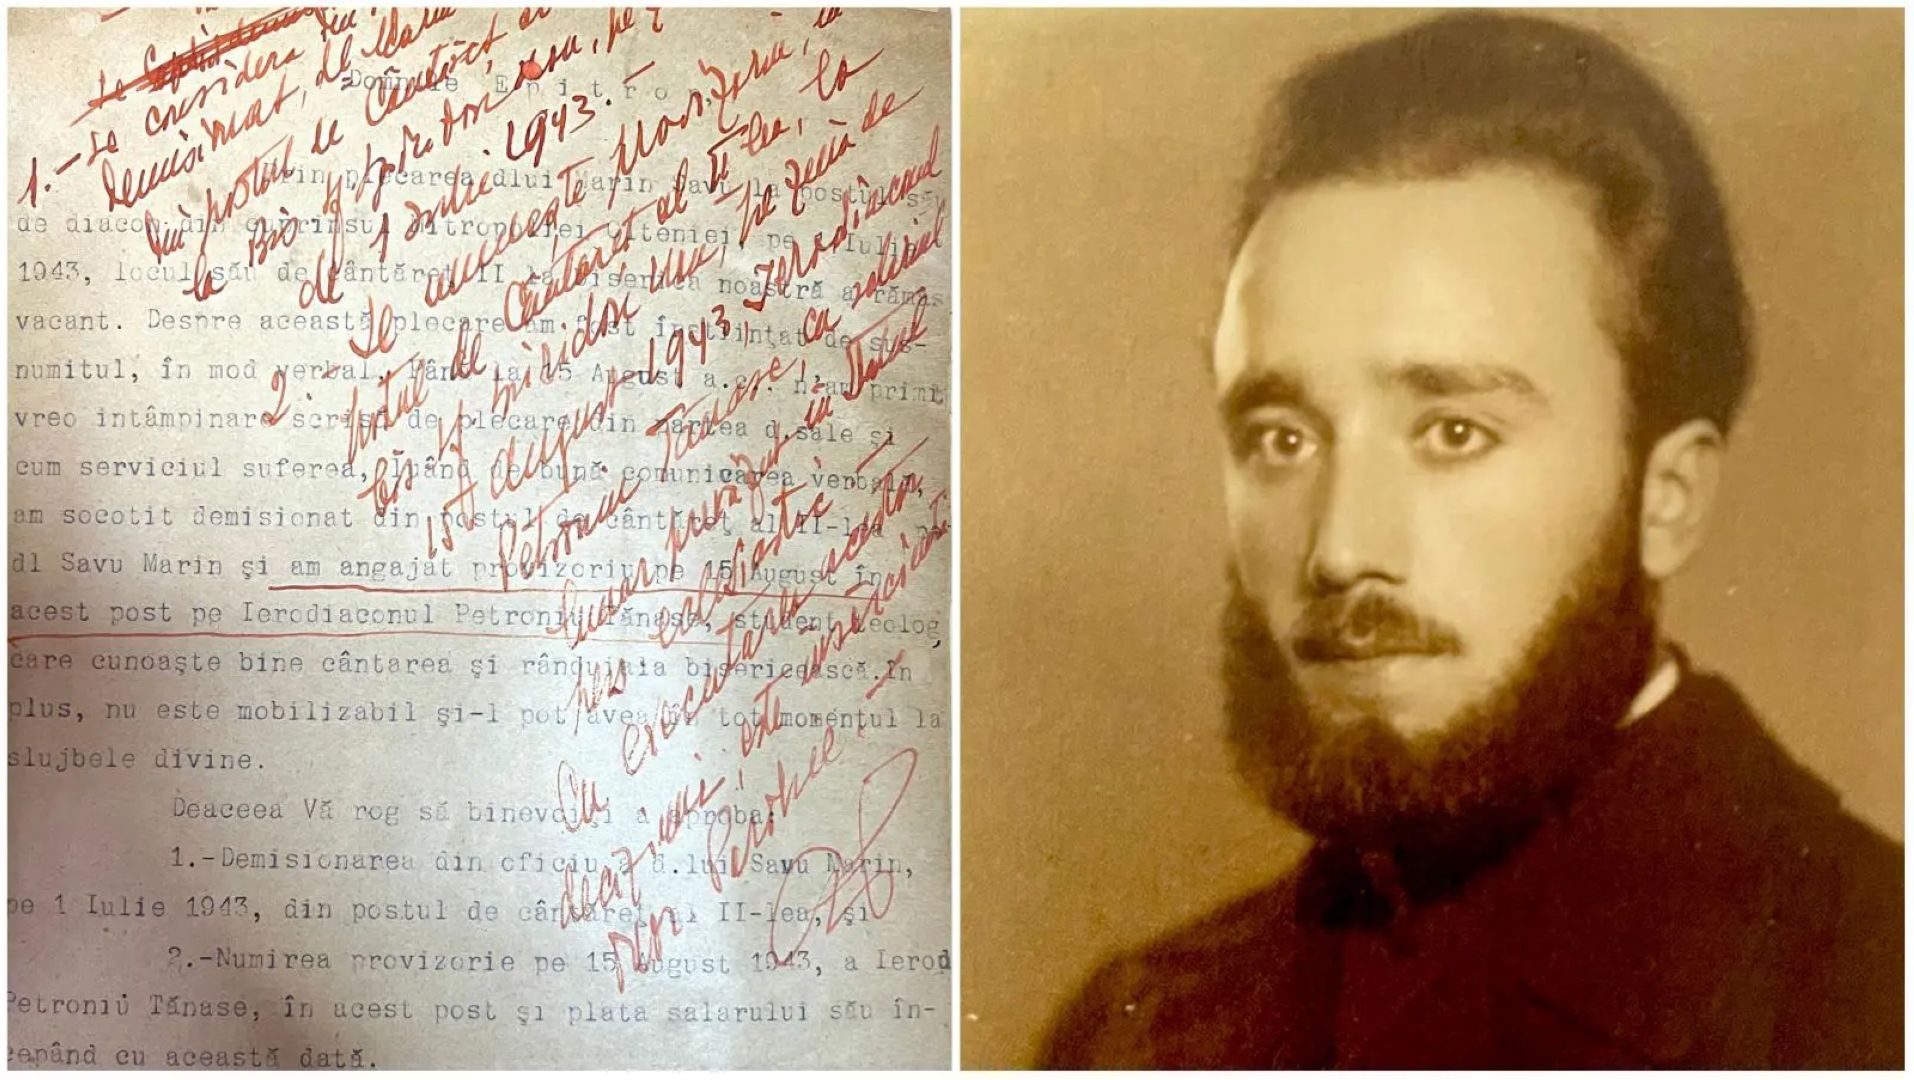 Domnule Epitrop,
Prin plecarea dlui Marin Savu la postul său
de diacon din cuprinsul Mitropoliei Olteniei, pe 1 Iulie
1943, locul său de cântăreț II la biserica noastră a rămas
vacant. Despre această plecare am fost înștiințat de sus-
numitul, în mod verbal. Până la 15 August a.c. n'am primit
vreo întâmpinare scrisă de plecare din partea d.sale și
cum serviciul suferea, luând de bună comunicarea verbală,
am socotit demisionat din postul de cântăreț al II-lea pe
dl Savu Marin și am angajat provizoriu pe 15 August în
acest post pe Ierodiaconul Petroniu Tănase, student teolog,
care cunoaște bine cântarea și rânduiala bisericească. În
plus, nu este mobilizabil și-l pot avea în tot momentul la
slujbele divine.
Deaceea Vă rog să binevoiți a aproba:
1.-Demisionarea din oficiu a d.lui Savu Marin,
pe 1 Iulie 1943, din postul de cântăreț al II-lea, și
2.-Numirea provizorie pe 15 August 1943, a Ierod
Petroniu Tănase, în acest post și plata salarului său în-
cepând cu această dată.
1.- se considera
demisionat, de
din postul de Cântăreț
la
de 1 Iulie 1943.
2. Se numește provizoriu, în
postul de Cântăreț al II lea, la
pe ziua de
15 August 1943, Ierodiaconul
Petroniu Tănase, cu salariul
lunar prevăzut în
Cu executarea acestei
decizii, este însărcinat